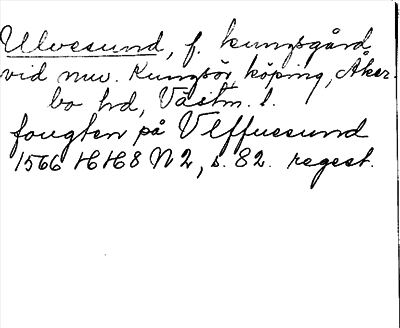 Ulvesund, f. kungsgård
vid nuv. Kungsör köping, Åker-
bo hd, Västm. l.
fougten på Vlffuesund
1566 HH8 N2, s. 82. regest.